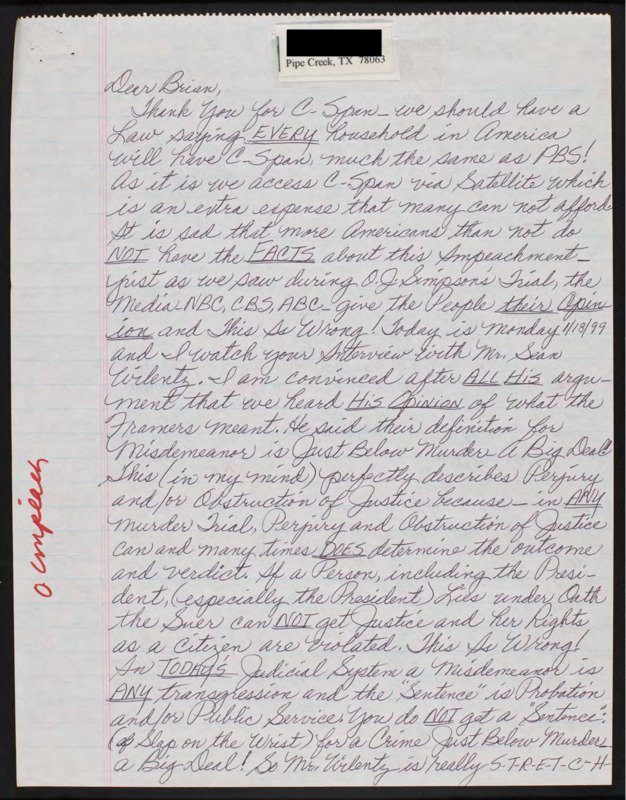 Pipe Creek, TX 78063
Dear Brian,
Thank You for C-Span - we should have a
Law saying EVERY household in America
will have C-Span, much the same as PBS!
As it is we access C-Span via Satellite which
is an extra expense that many can not afford.
It is sad that more Americans than not do
NOT have the FACTS about this Impeachment -
just as we saw during O.J. Simpson's Trial, the
Media - NBC, CBS, ABC - give the People their Opin
ion and This Is Wrong! Today is Monday 1/18/99
and I watch your Interview with Mr. Sean
Wilentz. I am convinced after ALL His argu-
ment that we heard His Opinion of what the
Framers meant. He said their definition for
Misdemeanor is Just Below Murder - A Big Deal!
This (in my mind) perfectly describes Perjury
and/or Obstruction of Justice because - in ANY
Murder Trial, Perjury and Obstruction of Justice
can and many times DOES determine the outcome
and verdict. If a Person, including the Presi-
dent, (especially the President) Lies under Oath
the Suer can NOT get Justice and her Rights
as a Citizen are violated. This Is Wrong!
In TODAYS Judicial System a Misdemeanor is
ANY transgression and the "Sentence" is Probation
and/or Public Service. You do NOT get a "Sentence".
(of Slap on the Wrist) for a Crime Just Below Murder -
a Big Deal! So Mr. Wilentz is really S-T-R-E-T-C-H
impeach